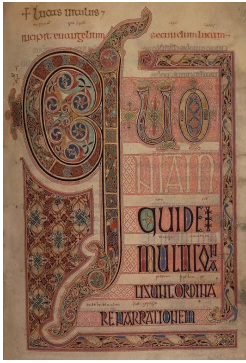 + Lucas uitulus
incipit euangelium secundum lucam
QUO
NIAM
QUIDEM
MULTI CON
ATI SUNT ORDINA
RE NARRATIONEM